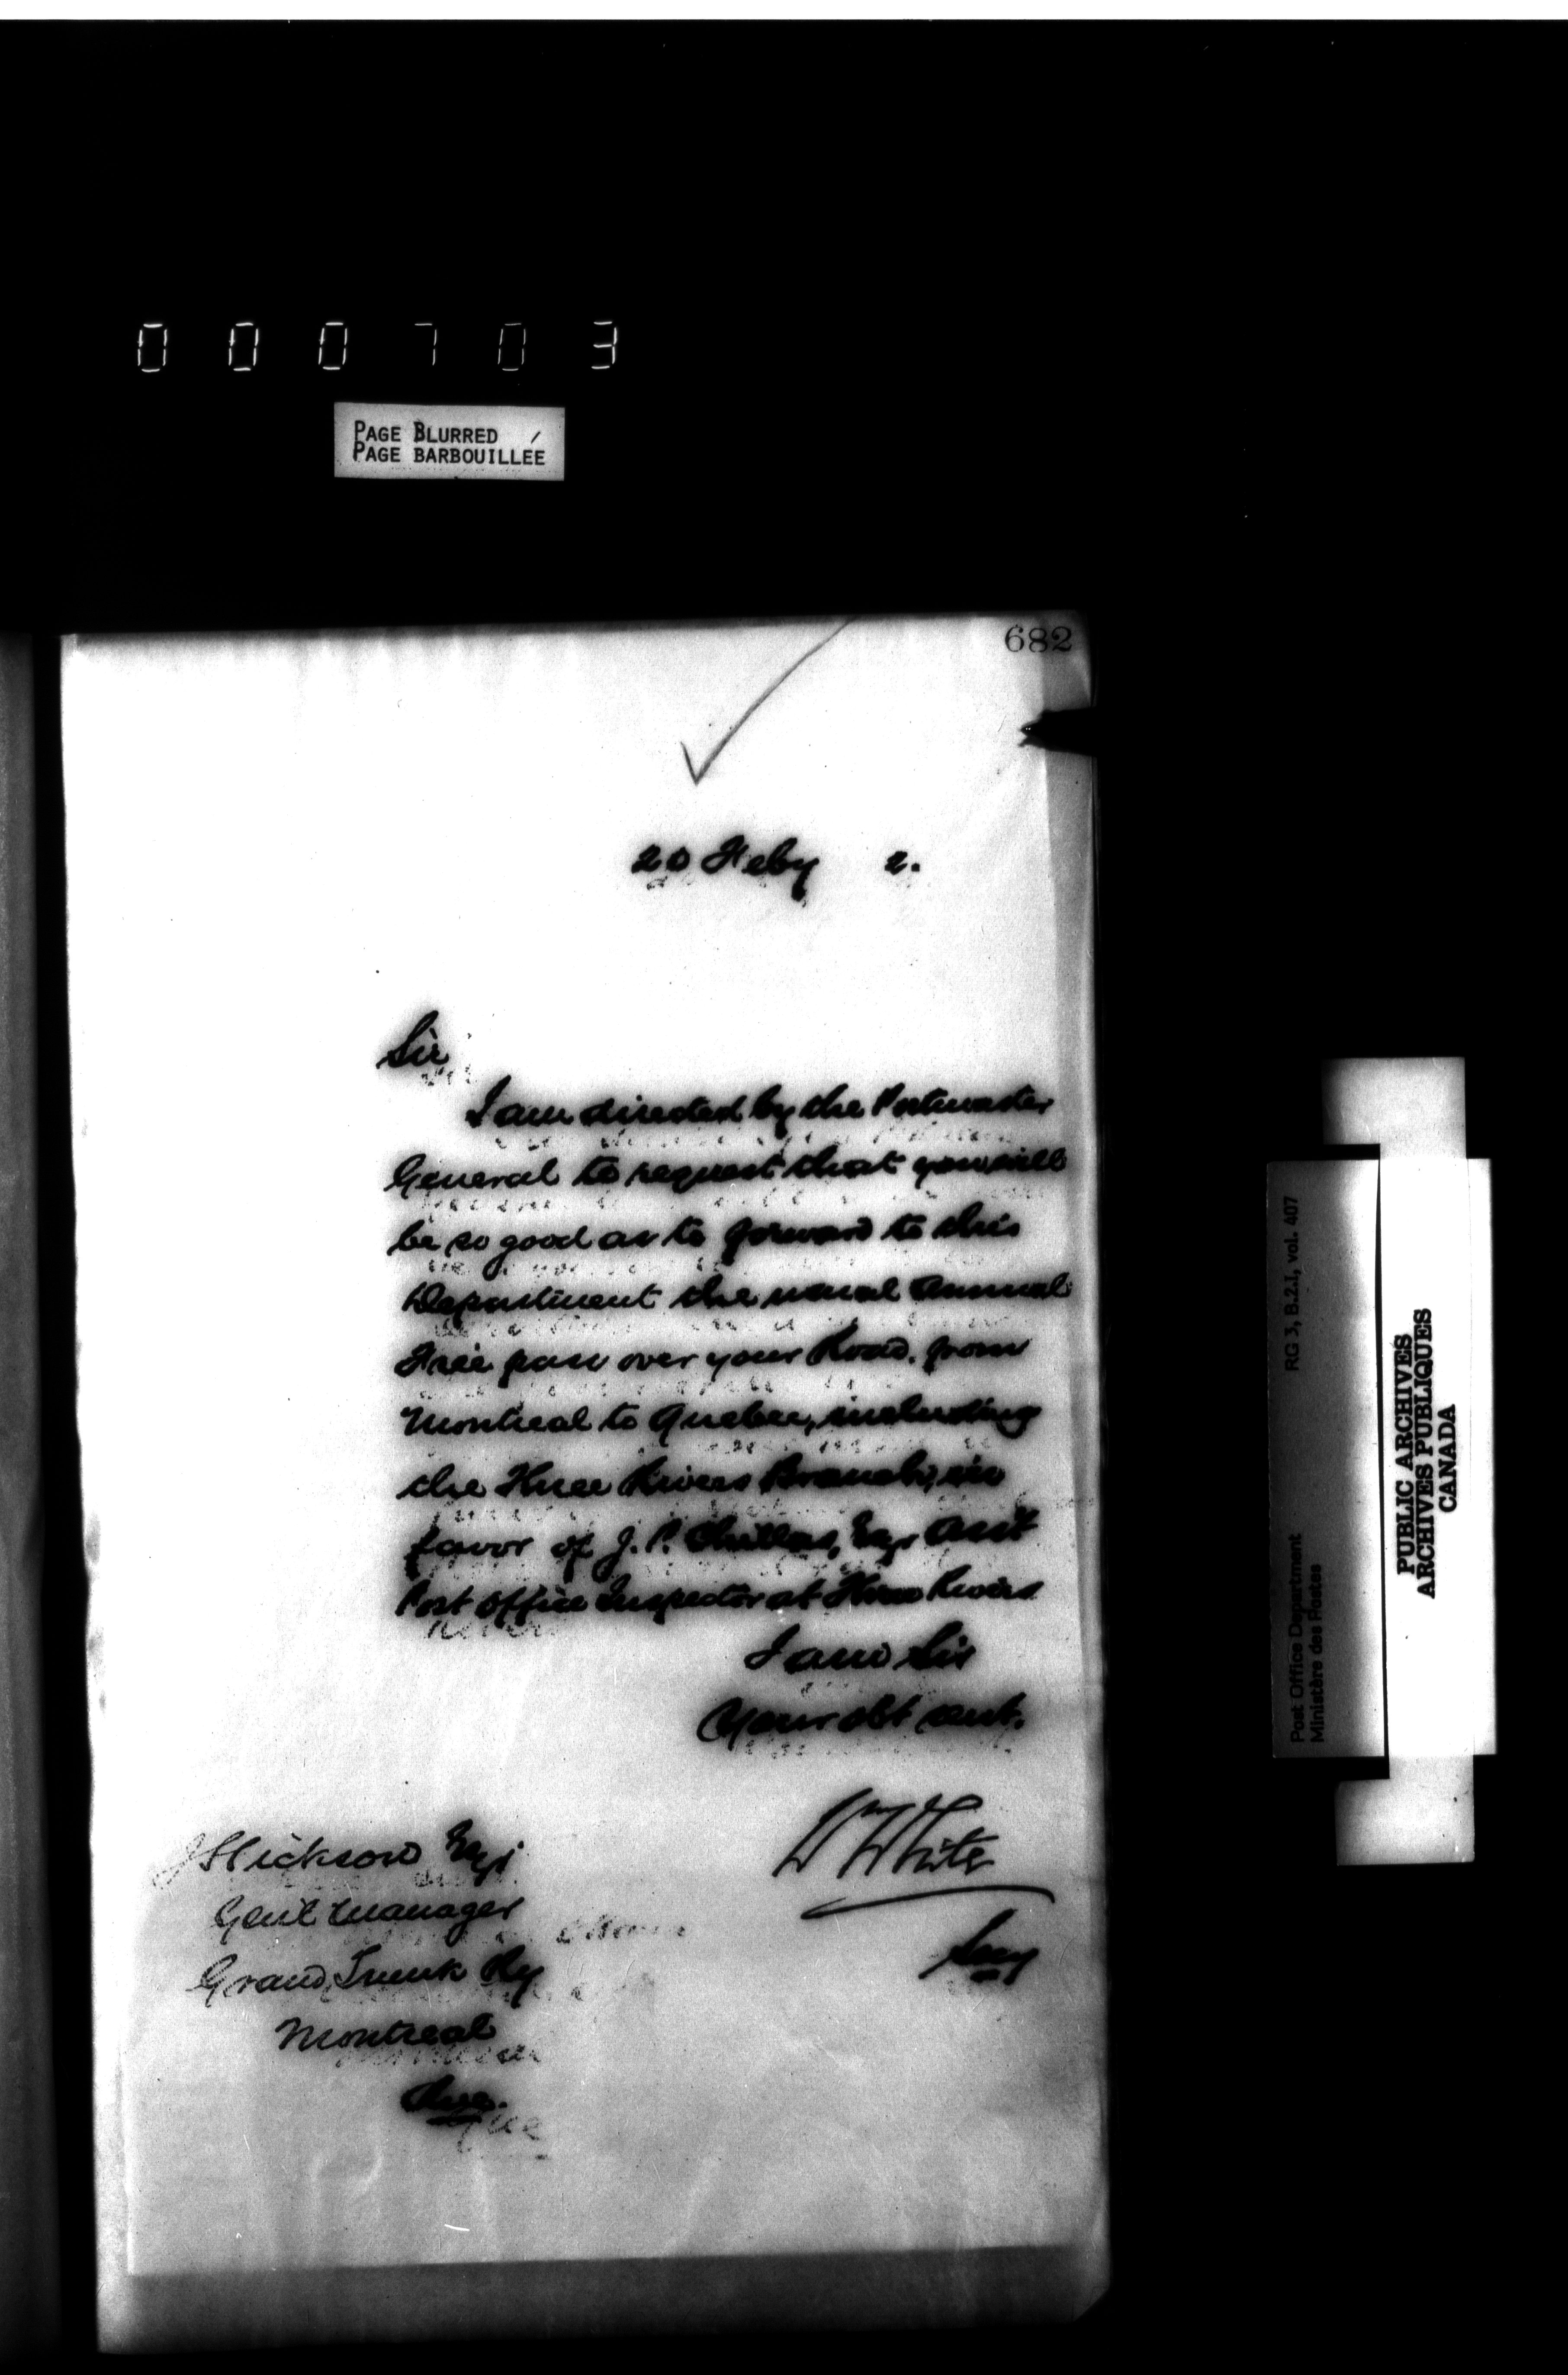 000703
PAGE BLURRED
PAGE BARBOUILLÉE
682
20 Feby 2.
Sir
I am directed by the Postmaster
General to request that you will
be so good as to forward to this
Department the usual annual
Free pass over your Road, from
Montreal to Quebec, including
the Three Rivers Branch, in
favor of J. P. Esqr Asst
Post Office Inspector at Three Rivers
I am Sir
Your obt servt.
J Hickson Esqr
Genl Manager
Grand Trunk Ry
Montreal
Que.
Wm White
Secy
RG 3, B.2.I, vol. 407
Post Office Department
Ministère des Postes
PUBLIC ARCHIVES
ARCHIVES PUBLIQUES
CANADA